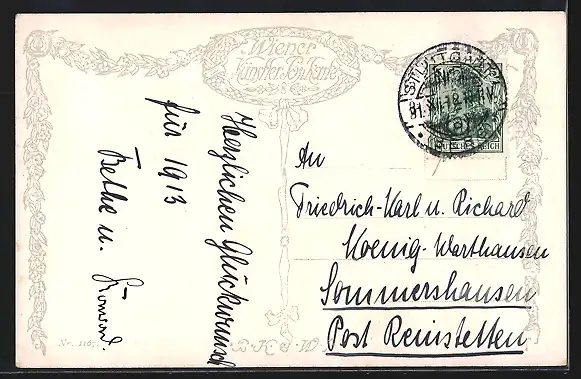 Wiener
Künstler-Postkarte
STUTTGART
DEUTSCHES REICH
Herzlichen Glückwunsch
für 1913
Bethe u. Konrad.
An
Friedrich-Karl u. Richard
Koenig-Warthausen
Sommershausen
Post Reinstetten
Nr. 1167.
B.K.W.I.